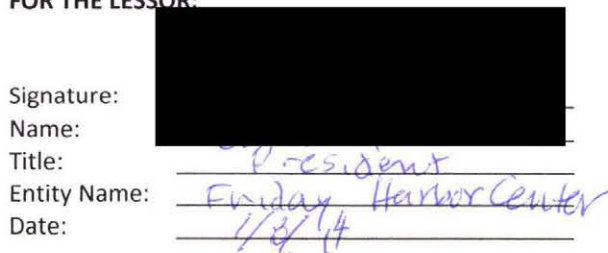 FOR THE LESSOR:
Signature:
Name:
Title: President
Entity Name: Friday Harbor Center
Date: 1/8/14